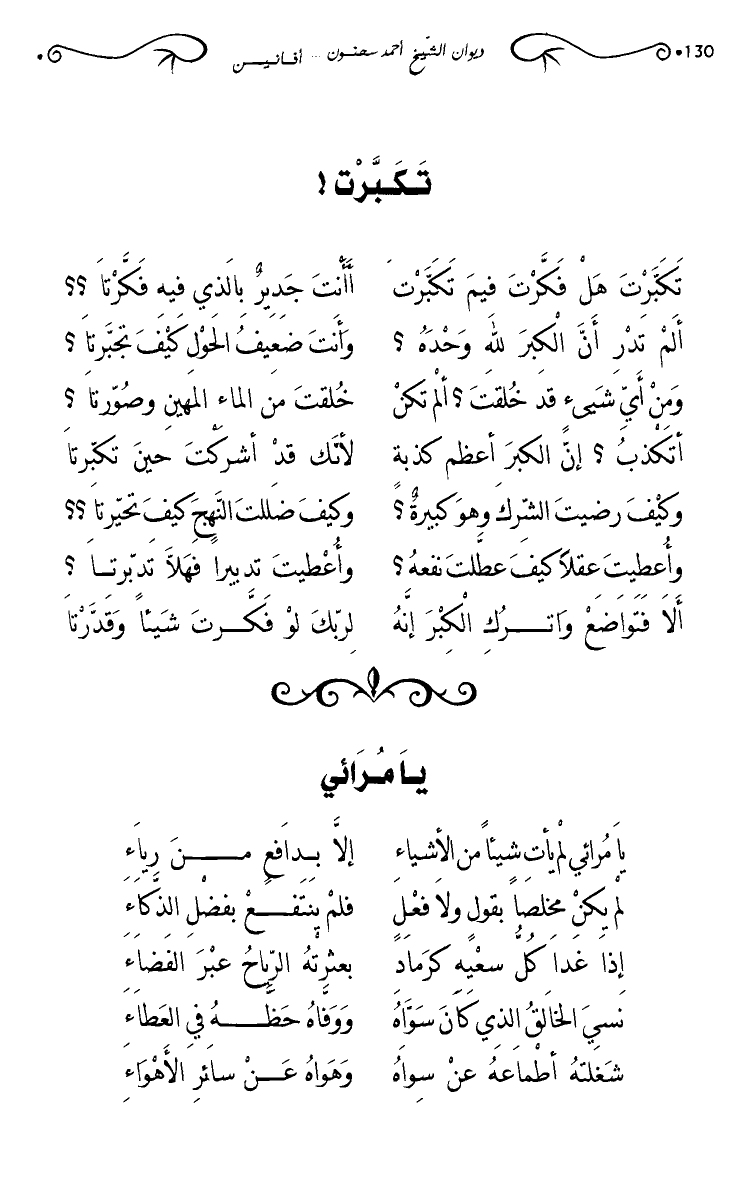 130 ديوان الشّيخ أحمد سحنون ... أفانيـــن
تَكَبَّرْت !
تَكَبَّرْتَ هَلْ فَكَّرْتَ فيمَ تَكَبَّرْتَ أَأَنْتَ جَديرٌ بالَذي فيه فَكَّرْتَا ؟؟
أَلَمْ تَدْرِ أَنَّ الْكِبرَ للهِ وَحْدَهُ ؟ وَأَنتَ ضَعِيفُ الحَوْل كَيْفَ تجَبَّرتَا ؟
وَمَنْ أَيِّ شَيىءٍ قد خُلقتَ ؟ أَلمْ تكنْ خُلقتَ من الماء المهين وصُوّرتَا ؟
أتكْذبُ ؟ إنَّ الكبرَ أعظم كذبةٍ لأنّك قدْ أشركْتَ حينَ تكبّرتَا
وكيْفَ رضيتَ الشّرك وهوَ كبيرةٌ ؟ وكيفَ ضللتَ النّهجَ كيفَ تحيّرتَا ؟؟
وأُعطيتَ عقلاً كيفَ عطّلتَ نفعهُ ؟ وأُعْطيتَ تدبيراً فَهَلاَّ تدبّرتـا ؟
أَلاَ فَتَوَاضَعْ وَاتـــركِ الْكِبْرَ إنَّهُ لِربّكَ لوْ فَكَّـــرتَ شَيئاً وَقَدَّرْتَا
يَا مُرَائي
يَا مُرائي لَمْ يأتِ شيئاً من الأشياءِ إلاَّ بِـدافعٍ مِـــــنَ رِياءِ
لَمْ يكنْ مخلصاً بقول ولاَ فعْلٍ فلمْ ينتفـــعْ بفضْلِ الذكَاءِ
إذا غدا كلُّ سعْيِهِ كرَمادٍ بعثرتْهُ الرّياحُ عبْرَ الفضاءِ
نسيَ الخالقُ الذي كَانَ سَوَّاهُ وَوَفَّاهُ حَظَّـــــهُ في العَطاءِ
شَغلتهُ أطْمَاعهُ عنْ سِواهُ وَهَواهُ عَـــنْ سائرِ الأَهْوَاءِ